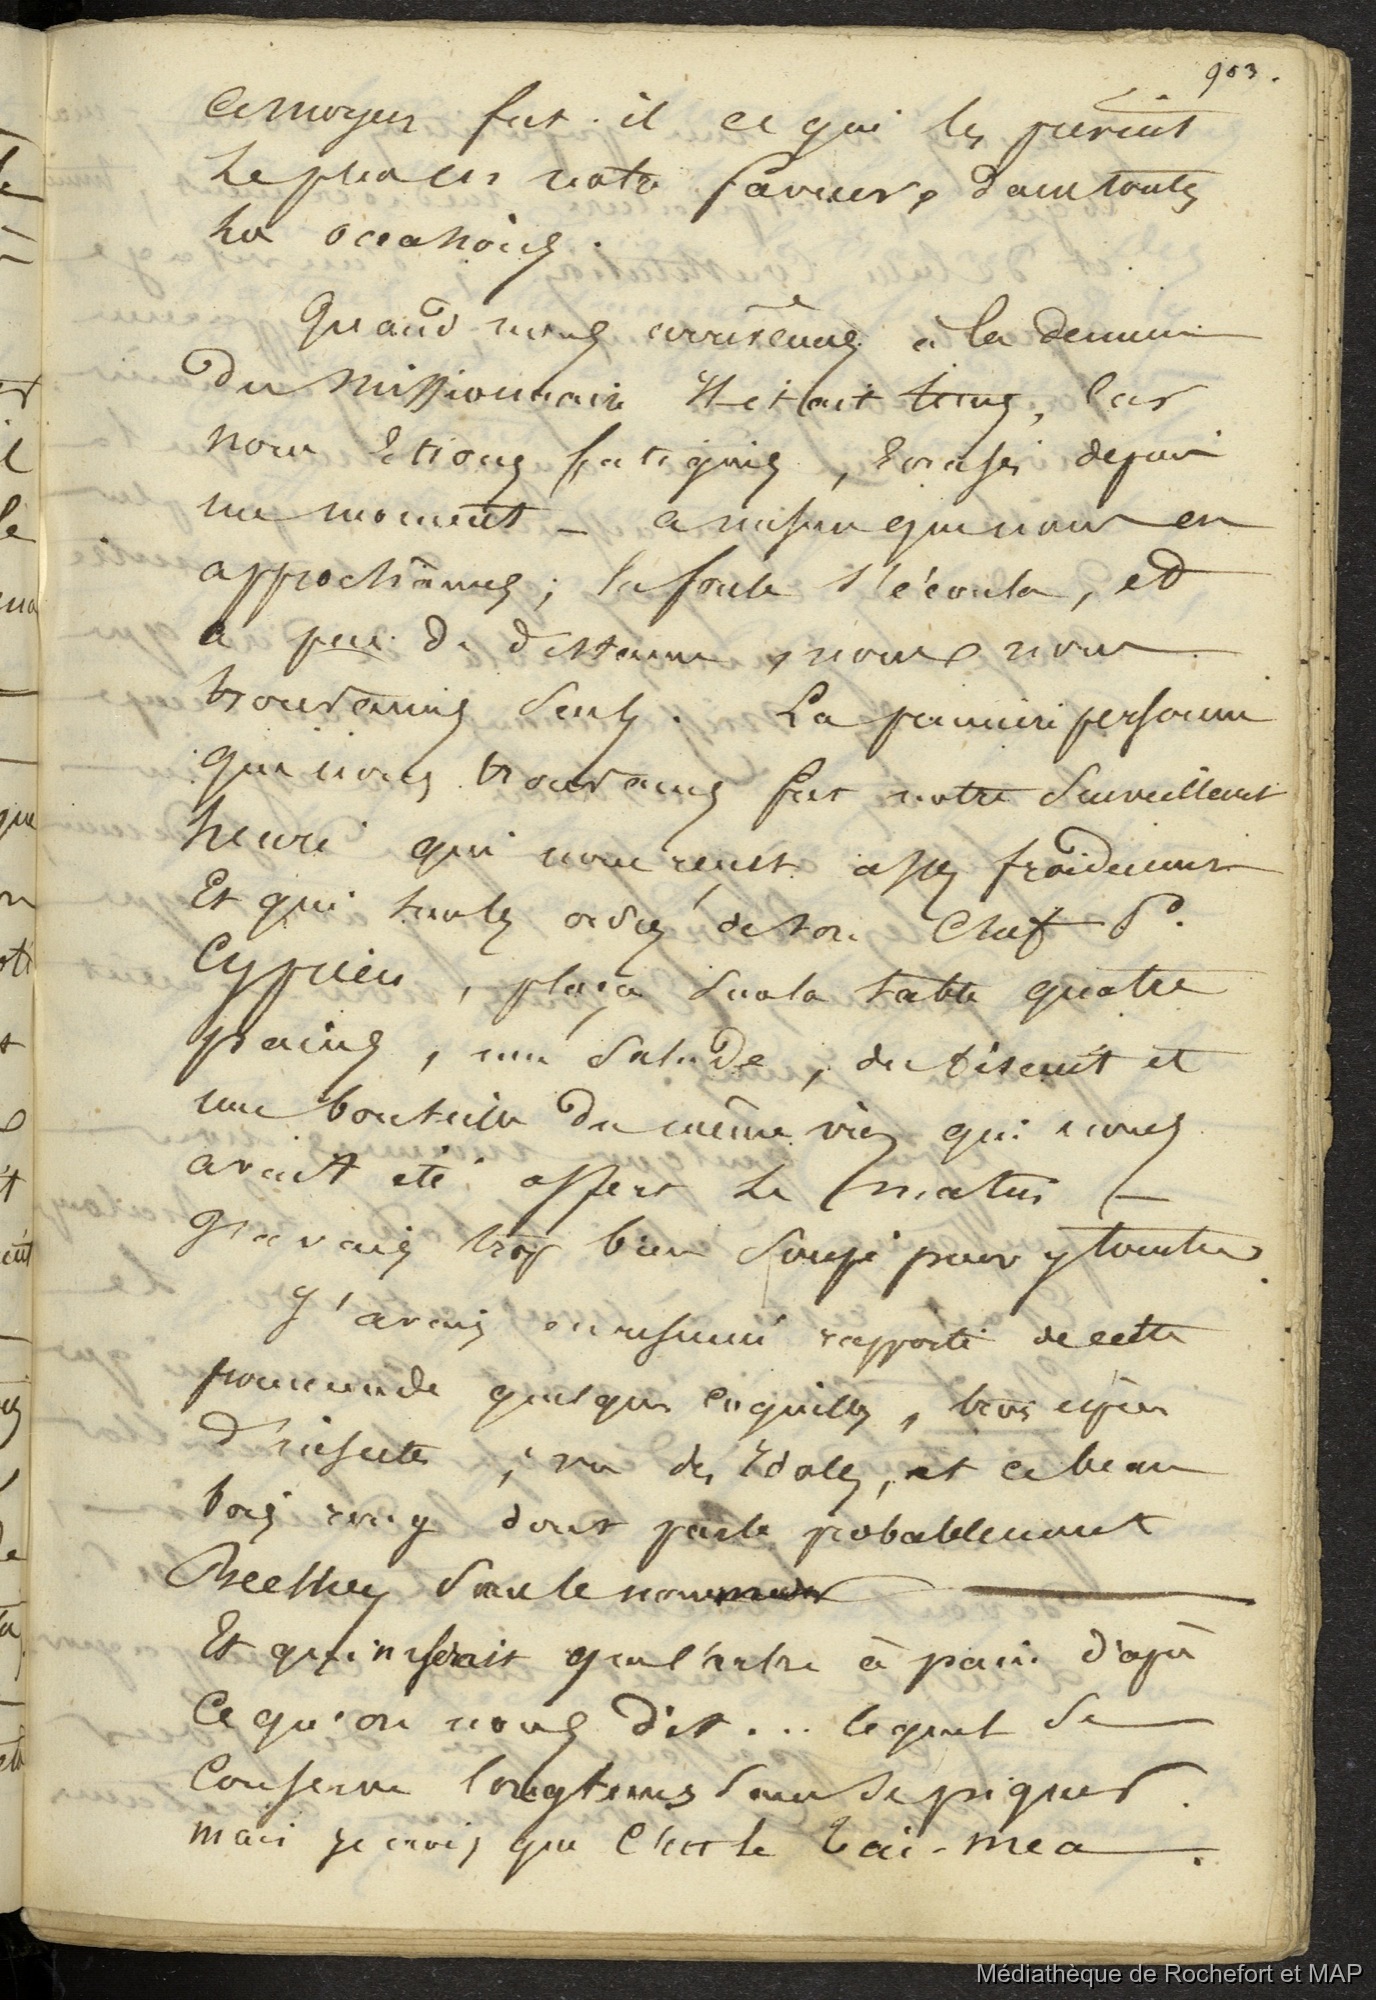 903.
ce moyen fut-il ce qui les prévint
le plus en notre faveur, dans toutes
les occasions.
Quand nous arrivâmes à la demeure
du missionnaire il était tems, car
nous étions fatigués, écrasés depuis
un moment — a mesure que nous en
approchâmes; la foule s'écoula, et
a peu de distance, nous nous
trouvâmes seuls. La premiere personne
que nous trouvames fut notre surveillant
henri qui nous reçut assez froidement
Et qui sur les ordres de son Chef P.
Cyprien, plaça sur la table quatre
pains, une salade, du biscuit et
une bouteille du même vin qui nous
avait été offert le matin —
J'avais trop bien soupé pour y toucher.
J'avais en resumé rapporté de cette
promenade quelques coquilles, trois espèces
d'insectes, vu des Idoles, et ce beau
bois rouge dont parle probablement
Beechey sous le nom
Et qui ne serait que l'arbre à pain d'après
ce qu'on nous dit... lequel se
conserve longtems sans se piquer.
mais je crois que c'est le Tai-mea.
Médiathèque de Rochefort et MAP